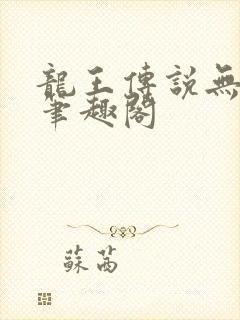 龍王傳説無
筆趣閣
蘇茜